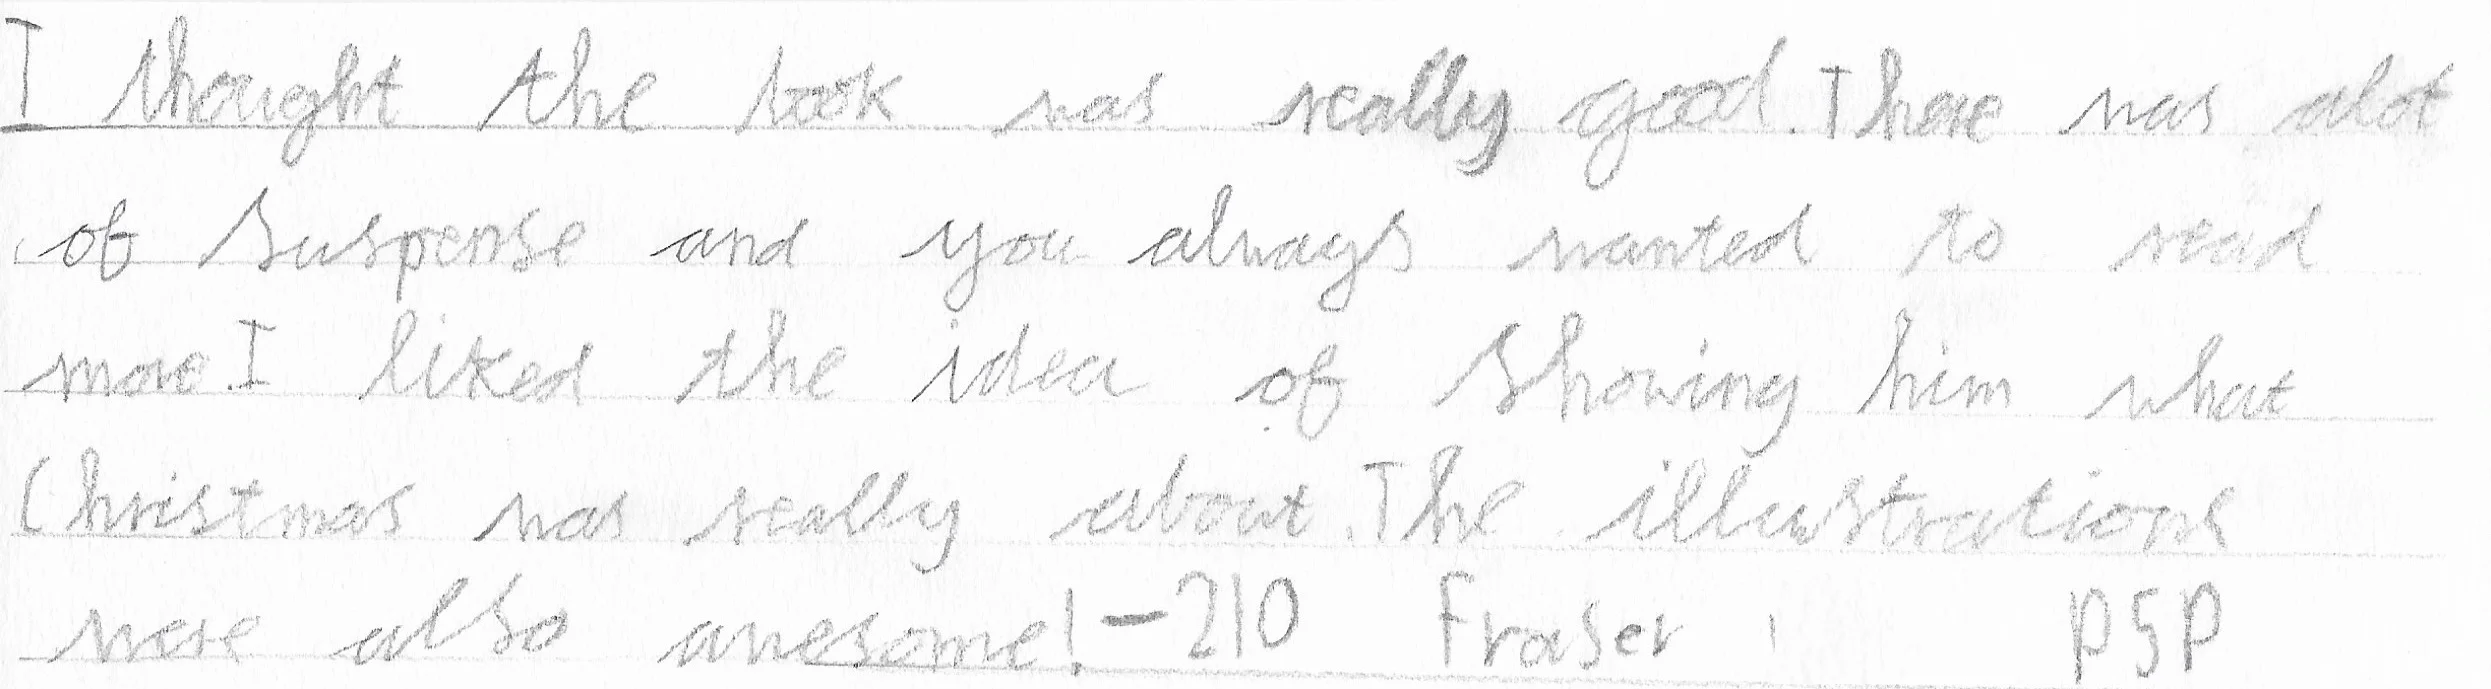 I thought the book was really good. There was alot
of suspense and you always wanted to read
more. I liked the idea of showing him what
Christmas was really about. The illustrations
were also awesome! - 210 Fraser P5P